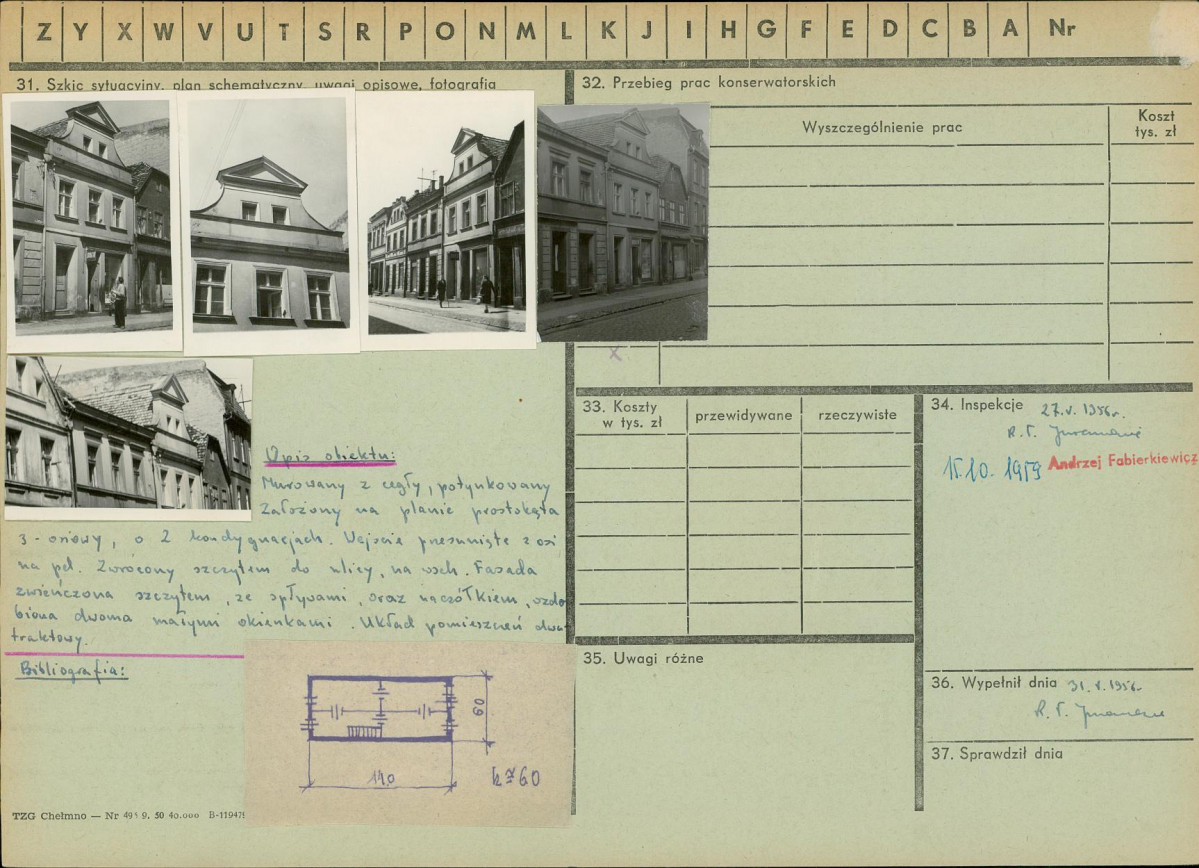 Z Y X W V U T S R P O N M L K J I H G F E D C B A Nr
31. Szkic sytuacyjny, plan schematyczny, uwagi opisowe, fotografia
Opis obiektu:
Murowany z cegły, potynkowany
Założony na planie prostokąta
3-osiowy, o 2 kondygnacjach. Wejście przesunięte z osi
na pd. Zwrócony szczytem do ulicy, na wsch. Fasada
zwieńczona szczytem, ze spływami, oraz naczółkiem, ozdo-
biona dwoma małymi okienkami. Układ pomieszczeń dwu-
traktowy.
Bibliografia:
14.0
60
h≈6.0
TZG Chełmno — Nr 495 9. 50 40.000 B-11947
32. Przebieg prac konserwatorskich
Wyszczególnienie prac
Koszt
tys. zł
x
33. Koszty
w tys. zł
przewidywane
rzeczywiste
34. Inspekcje 27.V.1956r.
R. T.
15.10.1959 Andrzej Fabierkiewicz
35. Uwagi różne
36. Wypełnił dnia 31.V.1956r.
R. T.
37. Sprawdził dnia